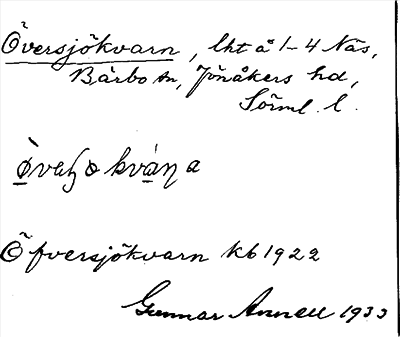 Översjökvarn, lht å 1-4 Näs,
Bärbo sn, Jönåkers hd,
Sörml. l.
Öfversjökvarn kb 1922
Gunnar Annell 1933